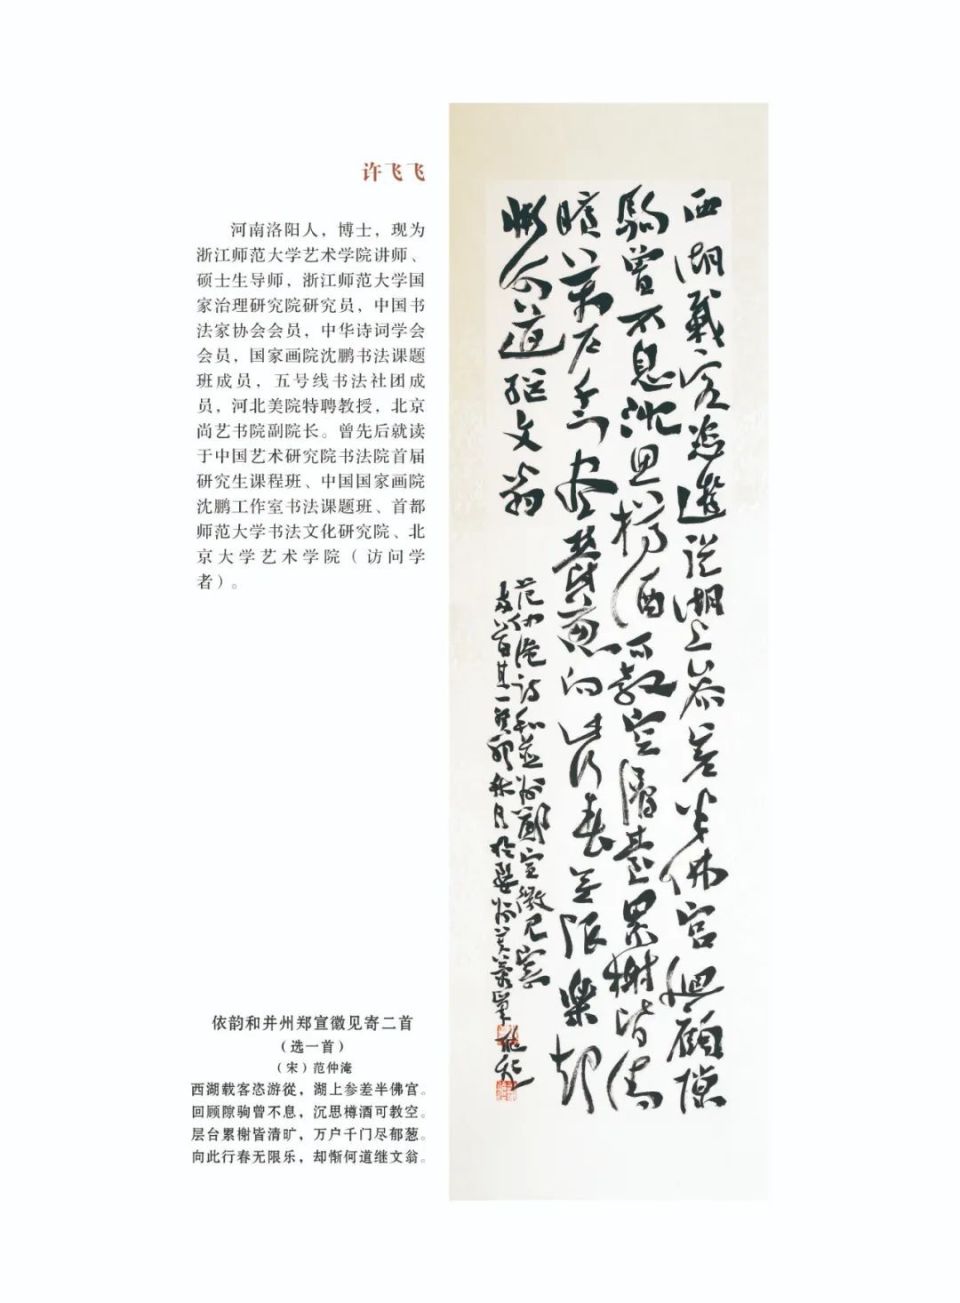 许飞飞
河南洛阳人，博士，现为
浙江师范大学艺术学院讲师、
硕士生导师，浙江师范大学国
家治理研究院研究员，中国书
法家协会会员，中华诗词学会
会员，国家画院沈鹏书法课题
班成员，五号线书法社团成
员，河北美院特聘教授，北京
尚艺书院副院长。曾先后就读
于中国艺术研究院书法院首届
研究生课程班、中国国家画院
沈鹏工作室书法课题班、首都
师范大学书法文化研究院、北
京大学艺术学院（访问学
者）。
依韵和并州郑宣徽见寄二首
（选一首）
（宋）范仲淹
西湖载客恣游從，湖上参差半佛宫。
回顾隙驹曾不息，沉思樽酒可教空。
层台累榭皆清旷，万户千门尽郁葱。
向此行春无限乐，却惭何道继文翁。
西湖載客恣遊從湖上參差半佛宮迴顧隙
駒曾不息沈思樽酒可教空層臺累榭皆清
曠萬戶千門盡鬱蔥向此行春無限樂却
慚何道繼文翁
范仲淹詩和並州鄭宣徽見寄
二首其一癸卯秋月於婺州